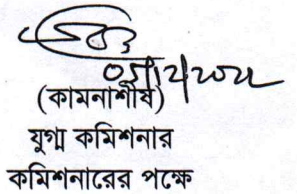 (কামনাশীষ)
যুগ্ম কমিশনার
কমিশনারের পক্ষে